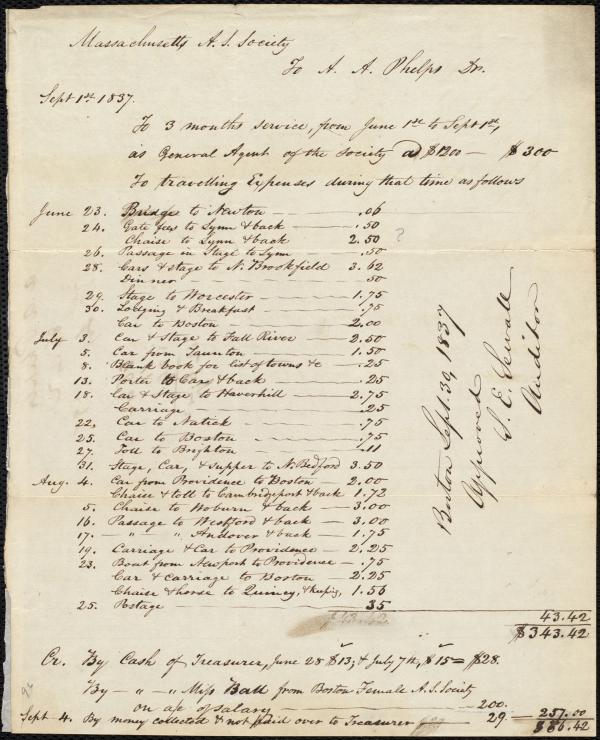 Massachusetts A. S. Society
To A. A. Phelps Dr.
Sept 1st 1837.
To 3 months service, from June 1st to Sept 1st,
as General Agent of the Society @ $1200 — $300
To travelling Expenses during that time as follows
June 23. Bridge to Newton — .06
24. Gate fees to Lynn & back — .50
Chaise to Lynn & back 2.50 ?
26. Passage in Stage to Lynn — .50
28. Cars & stage to N. Brookfield 3.62
Dinner — .50
29. Stage to Worcester — 1.75
30. Lodging & Breakfast — .75
Car to Boston — 2.00
July 3. Car & Stage to Fall River — 2.50
5. Car from Taunton — 1.50
8. Blank book for list of towns &c — .25
13. Porter to Cars & back — .25
18. Car & Stage to Haverhill — 2.75
Carriage — .25
22. Car to Natick — .75
25. Car to Boston — .75
27. Toll to Brighton — .11
31. Stage, Car, & supper to N. Bedford 3.50
Aug. 4. Car from Providence to Boston — 2.00
Chaise & toll to Cambridgeport & back 1.72
5. Chaise to Woburn & back — 3.00
16. Passage to Westford & back — 3.00
17. — " — " Andover & back — 1.75
19. Carriage & Car to Providence — 2.25
23. Boat from Newport to Providence — .75
Car & Carriage to Boston — 2.25
Chaise & horse to Quincy, & keeping, 1.56
25. Postage — 35
$43.42
43.42
$343.42
Boston Sept. 30, 1837
Approved
S. E. Sewall
Auditor
Cr. By Cash of Treasurer, June 28 $13, & July 7th, $15 = $28.
By — " — " Miss Ball from Boston Female A. S. Society
on a/c of salary — 200.
Sept 4. By money collected & not paid over to Treasurer 29 — 257.00
$86.42